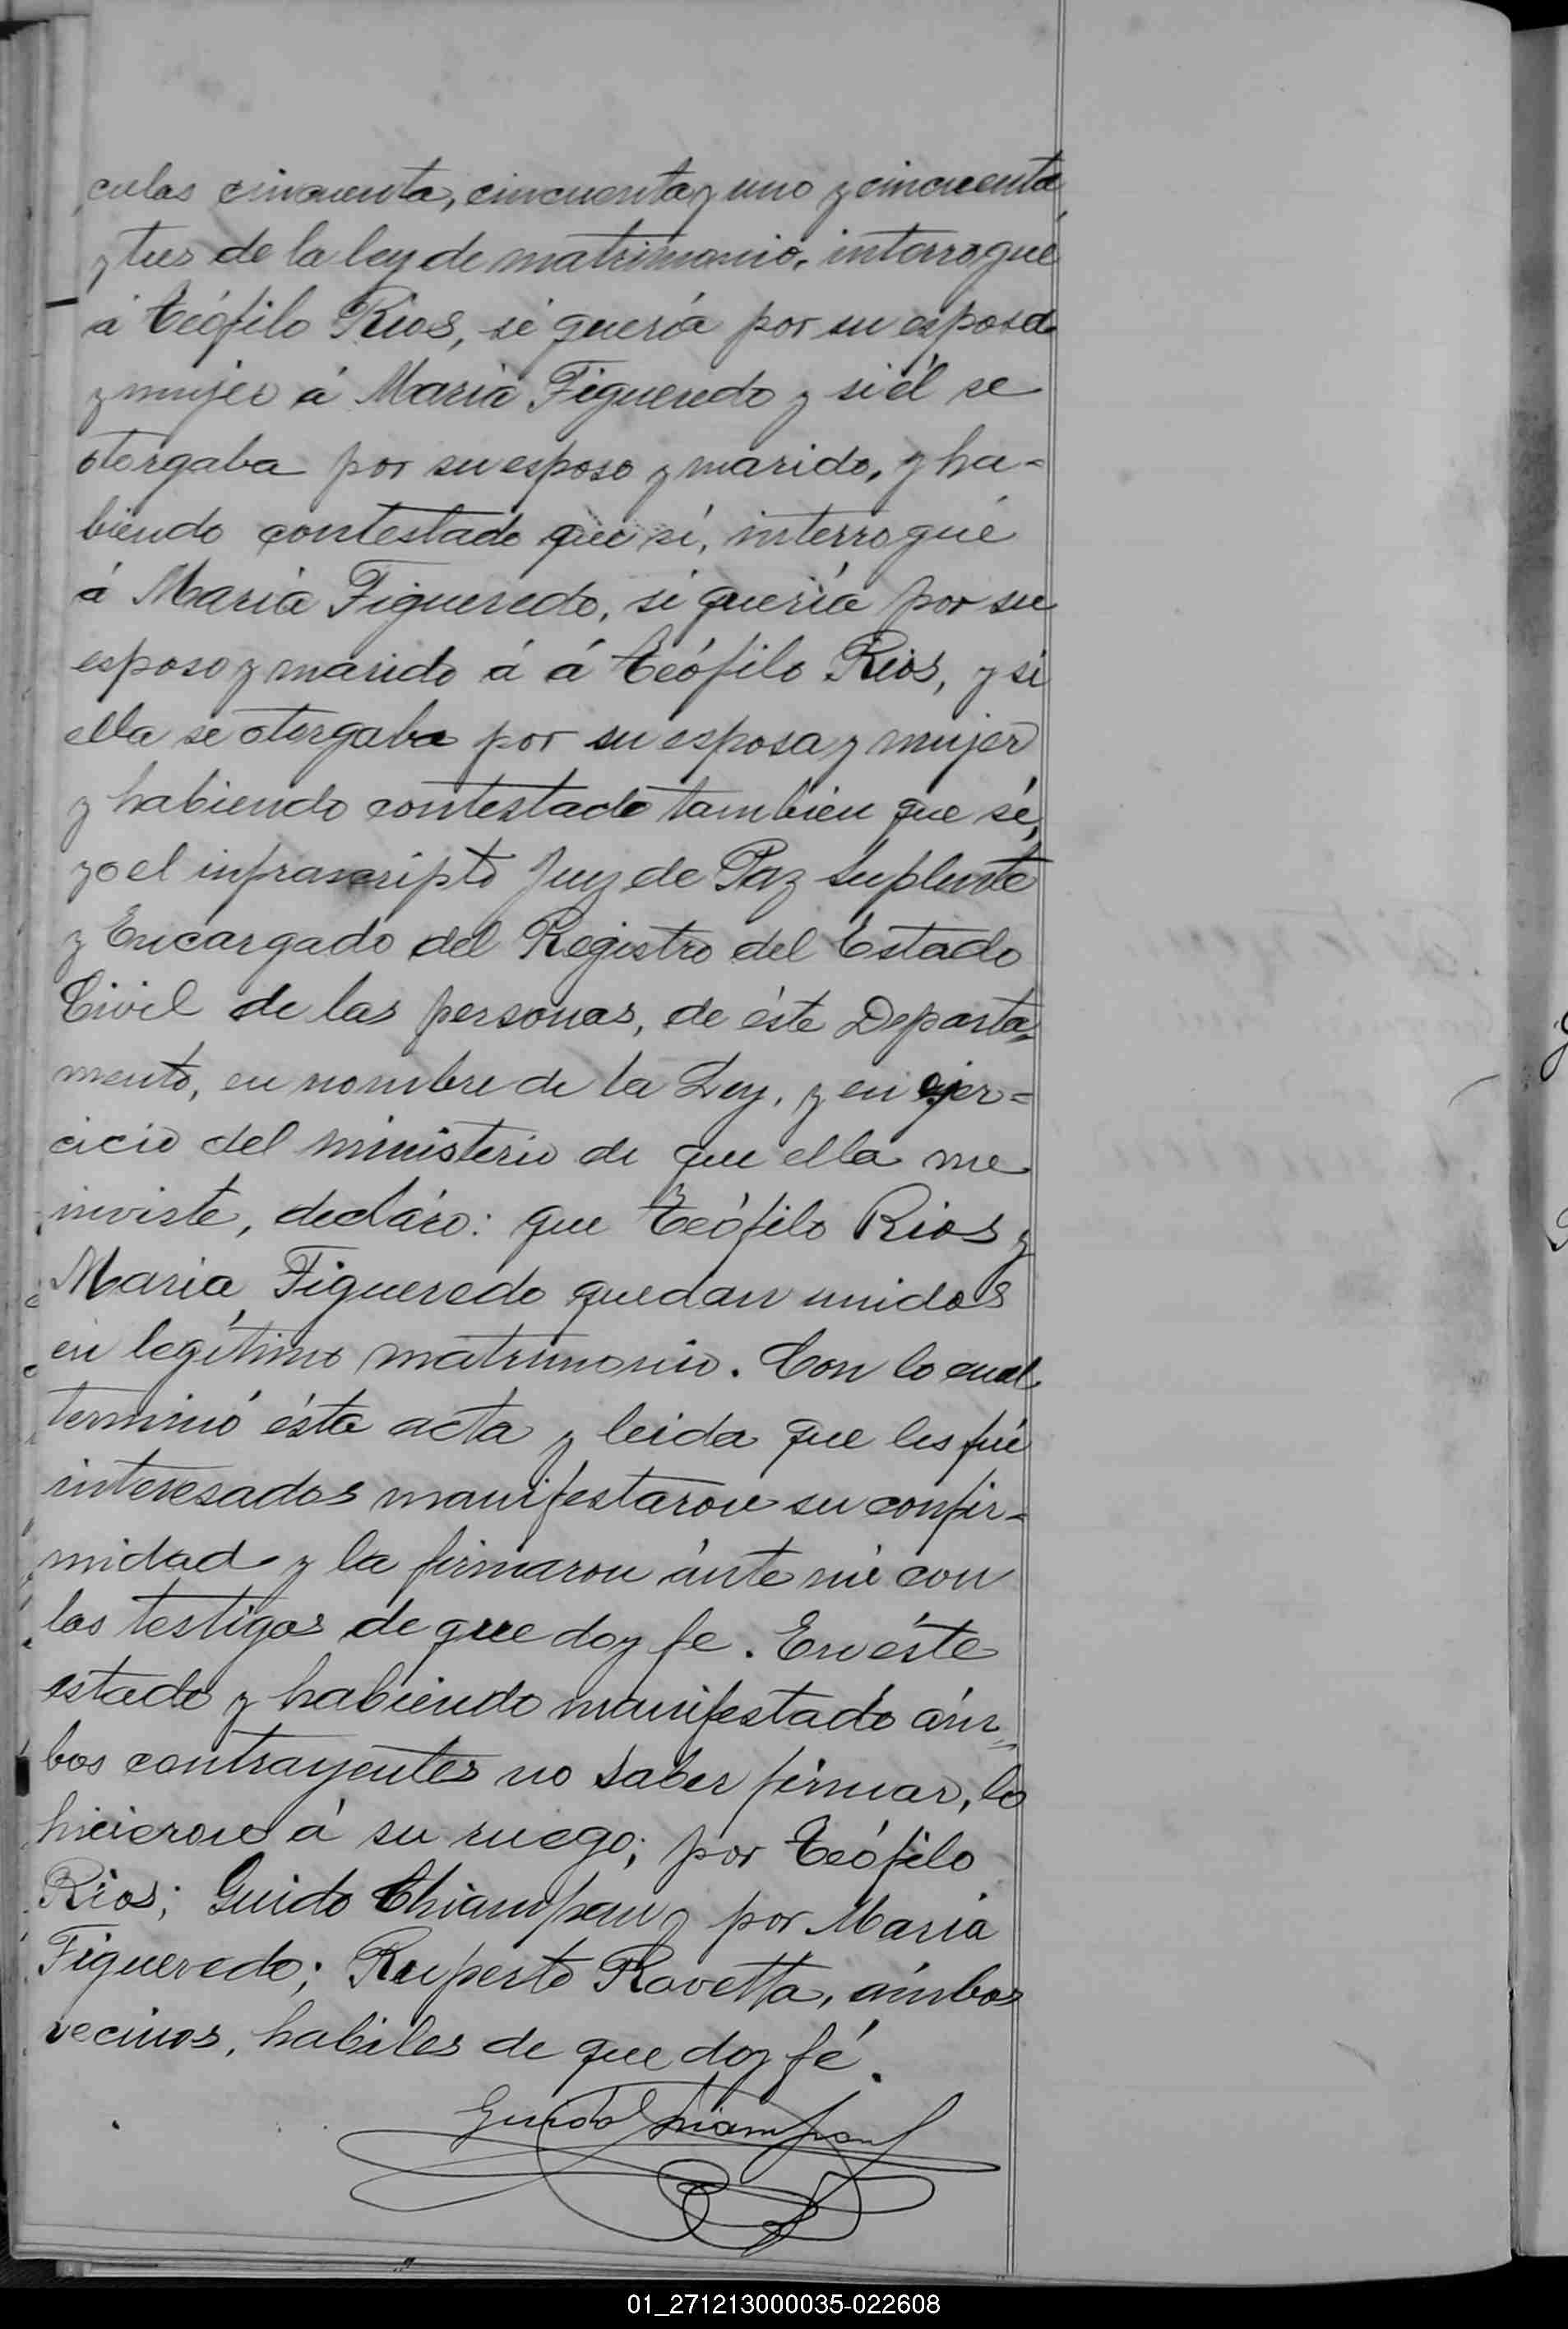 culos cincuenta, cincuenta y uno y cincuenta
y tres de la ley de matrimonio, interrogué
á Teófilo Rios, si quería por su esposa
y mujer á Maria Figueredo y si él se
otorgaba por su esposo y marido, y ha=
biendo contestado que sí, interrogué
á Maria Figueredo, si quería por su
esposo y marido á á Teófilo Rios, y si
ella se otorgaba por su esposa y mujer
y habiendo contestado tambien que sí,
yo el infrascripto Juez de Paz Suplente
y Encargado del Registro del Estado
Civil de las personas, de éste Departa=
mento, en nombre de la Ley, y en ejer=
cicio del ministerio de que ella me
inviste, decláro: que Teófilo Rios y
Maria Figueredo quedan unidos
en legítimo matrimonio. Con lo cual
terminó ésta acta y leida que les fué
interesados manifestaron su confor=
midad y la firmaron ánte mí con
los testigos de que doy fe. En éste
estado y habiendo manifestado ám=
bos contrayentes no saber firmar, lo
hicieron á su ruego; por Teófilo
Rios; Guido Chiampan y por Maria
Figueredo; Ruperto Rovetta, ámbos
vecinos, habiles de que doy fé.
Guido Chiampan
01_271213000035-022608